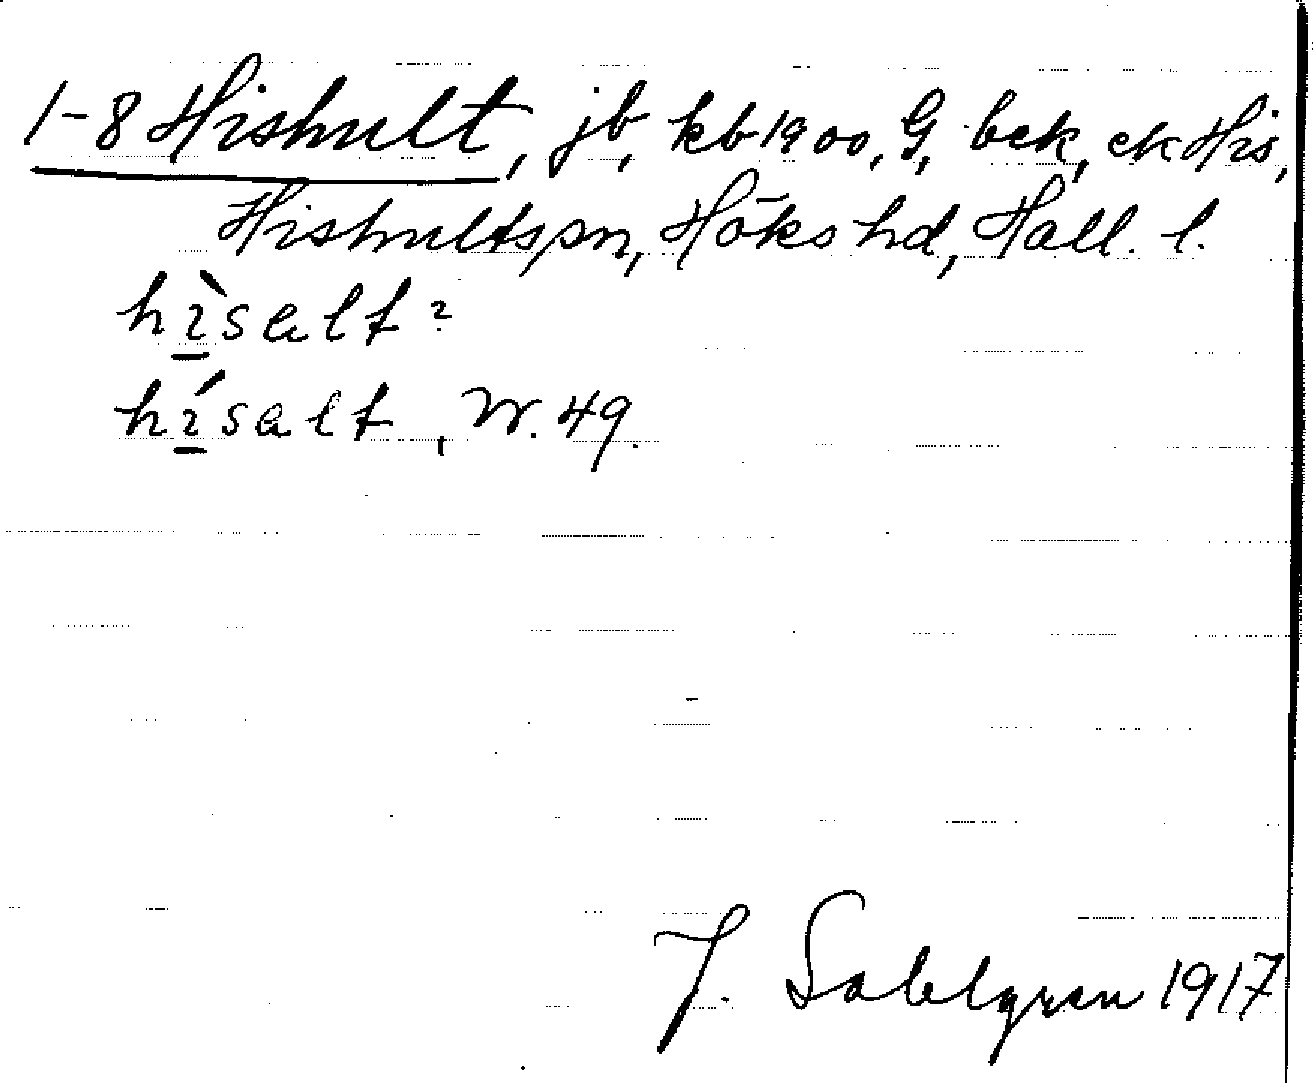 1-8 Hishult, jb, kb 1900, G, bek, ek His,
Hishultspn, Höks hd, Hall. l.
hìsalt?
hísalt, W. 49.
J. Sahlgren 1917